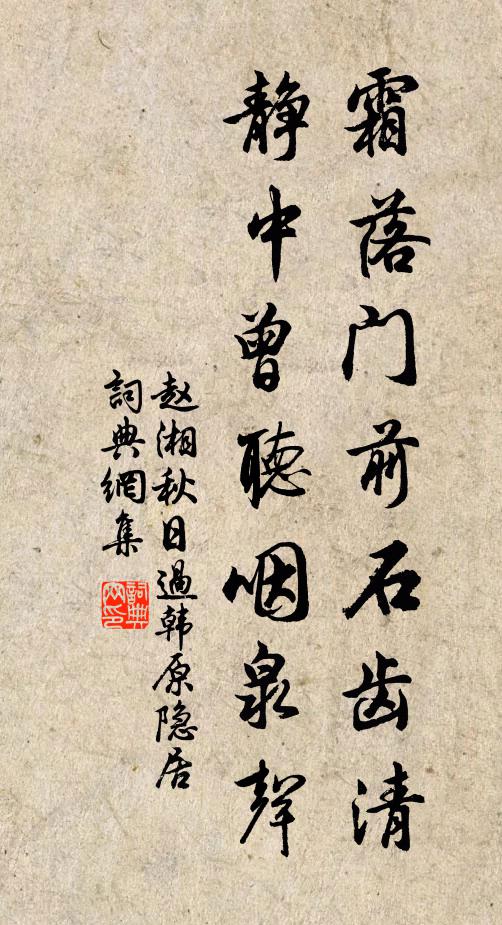 霜落门前石齿清
静中曾聽咽泉聲
赵湘秋日過韩原隐居
詞典網集
詞典网印